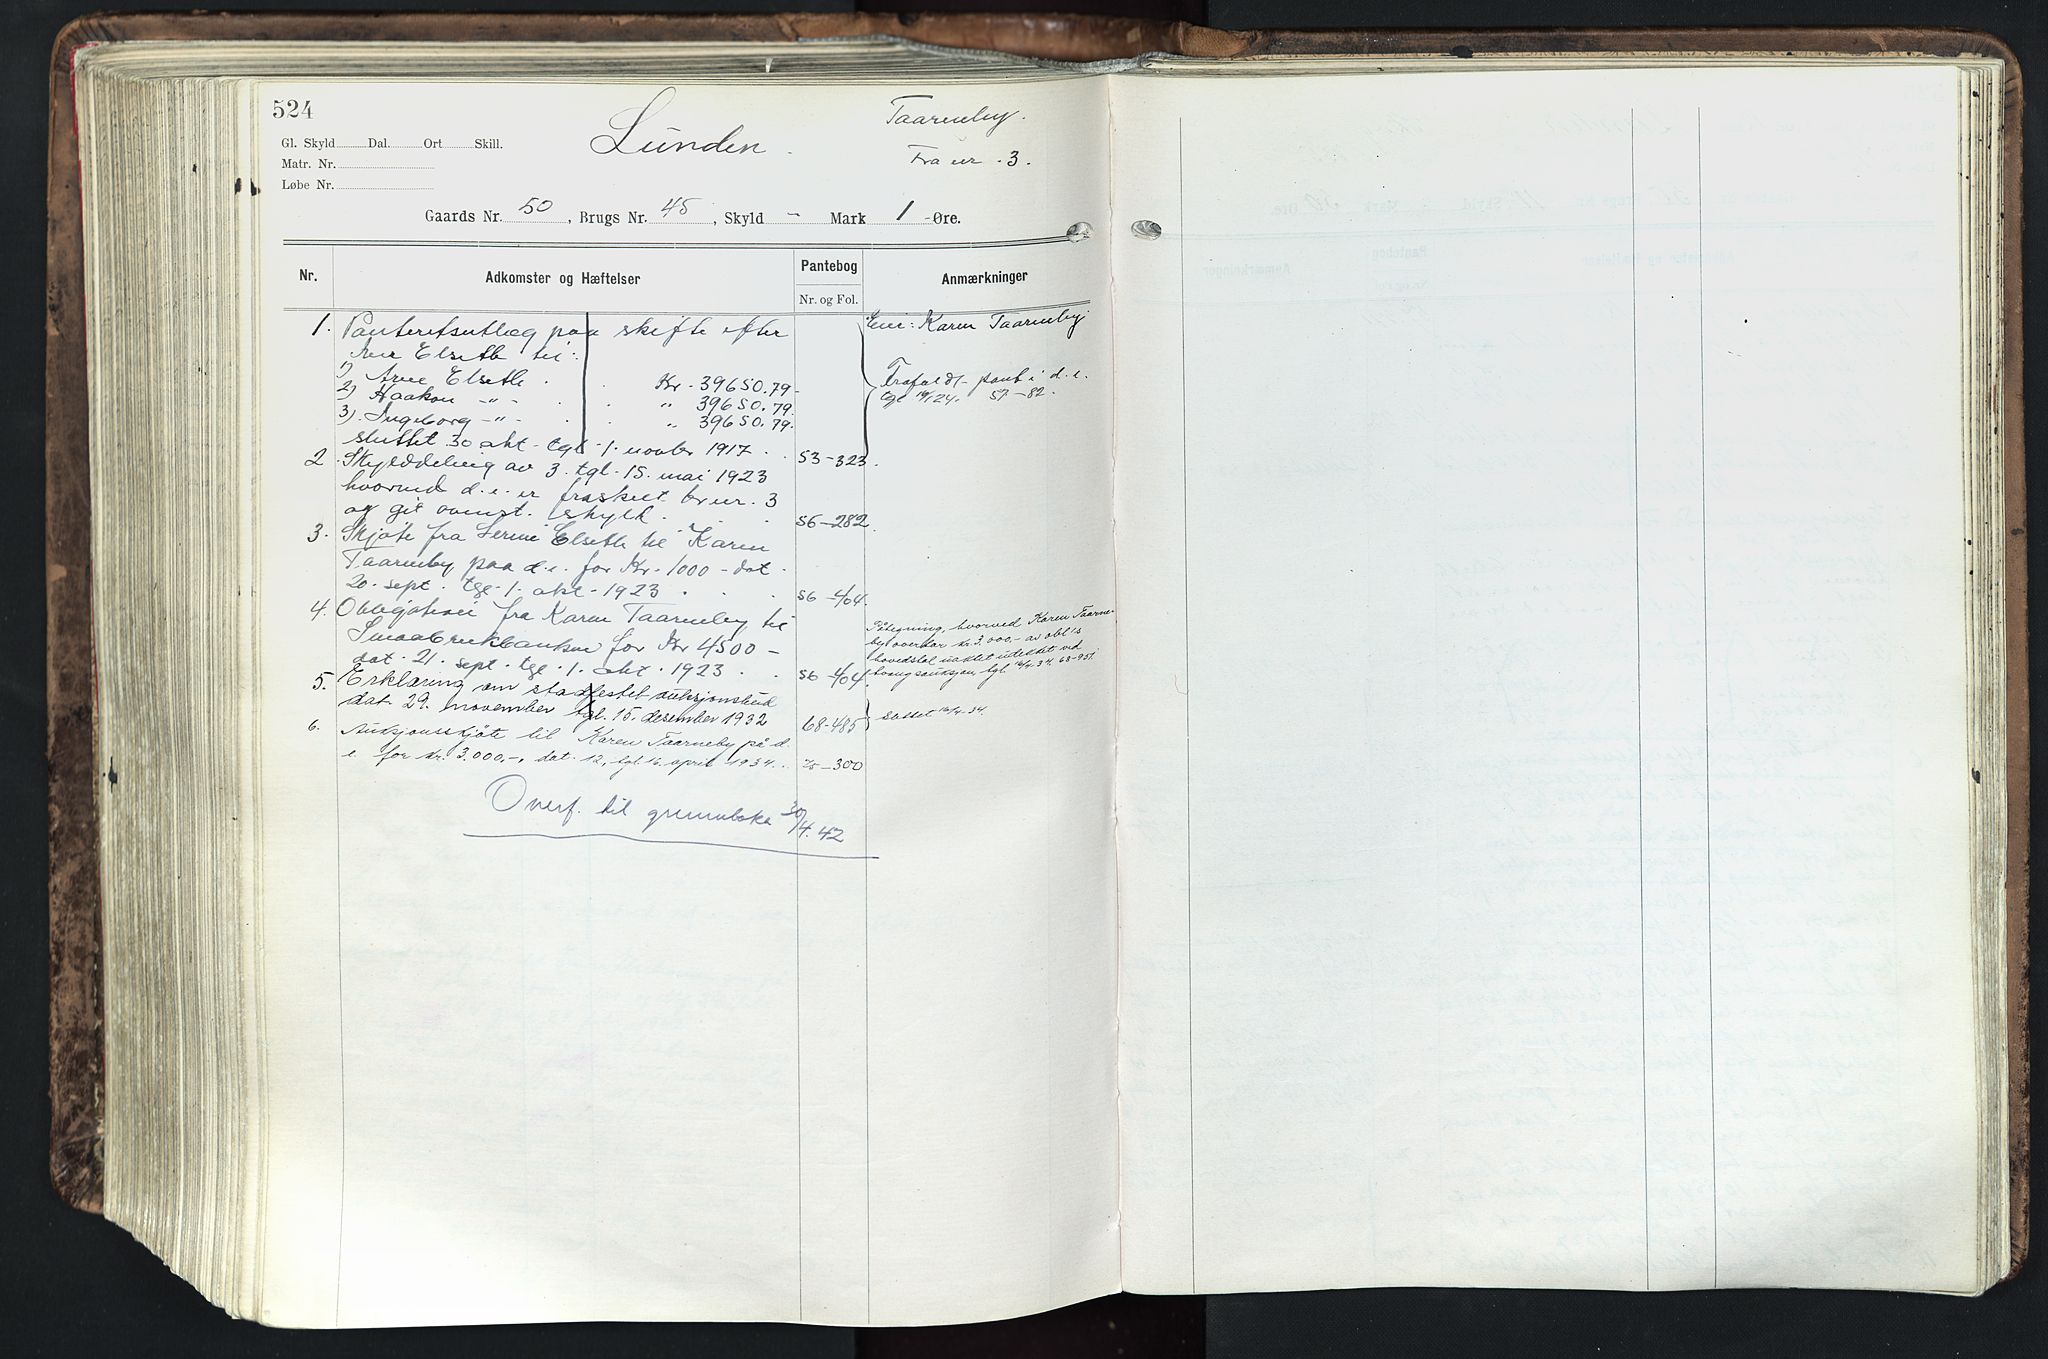 524
Lunden.
Taarneby.
Fra nr. 3.
Gl. Skyld Dal. Ort Skill.
Matr. Nr.
Løbe Nr.
Gaards Nr. 50, Brugs Nr. 45, Skyld - Mark 1 Øre.
Nr. Adkomster og Hæftelser Pantebog Anmærkninger
Nr. og Fol.
1. Panteretsutlæg paa skifte efter Eier: Karen Taarneby
Elseth til:
1) Arne Elseth . . Kr. 39650.79 Frafaldt pant i d. e.
2) Haakon -"- . . " 39650.79 tgl 24. 57-82.
3) Ingeborg -"- . . " 39650.79.
sluttet 30 okt. tgl. 1. novbr 1917 . . 53-323.
2. Skylddeling av 3. tgl. 15. mai 1923
hvorved d. e. er fraskilt br nr. 3
og git ovenst. skyld. . . 56-282.
3. Skjøte fra Serine Elseth til Karen
Taarneby paa d.e. for Kr. 1000 - dat.
20. sept. tgl. 1. okt. 1923 . . . 56-404.
4. Obligation fra Karen Taarneby til Påtegning, hvorved Karen Taarne-
Smaabrukbanken for Kr 4500 - by overtar kr. 3.000,- av obl's
dat. 21. sept. tgl. 1. okt. 1923 . . 56-404. hovedstol uaktet udekket ved
tvangsauksjon, tgl. 16/4.34. 68-951.
5. Erklæring om stadfestet auksjonsbud
dat. 29. november tgl. 15. desember 1932 68-485 Slettet 16/4-34.
6. Auksjonsskjøte til Karen Taarneby på d.
e. for kr. 3.000,-, dat. 12, tgl. 16. april 1934. . -300
Overf. til grunnboka 30/4.42